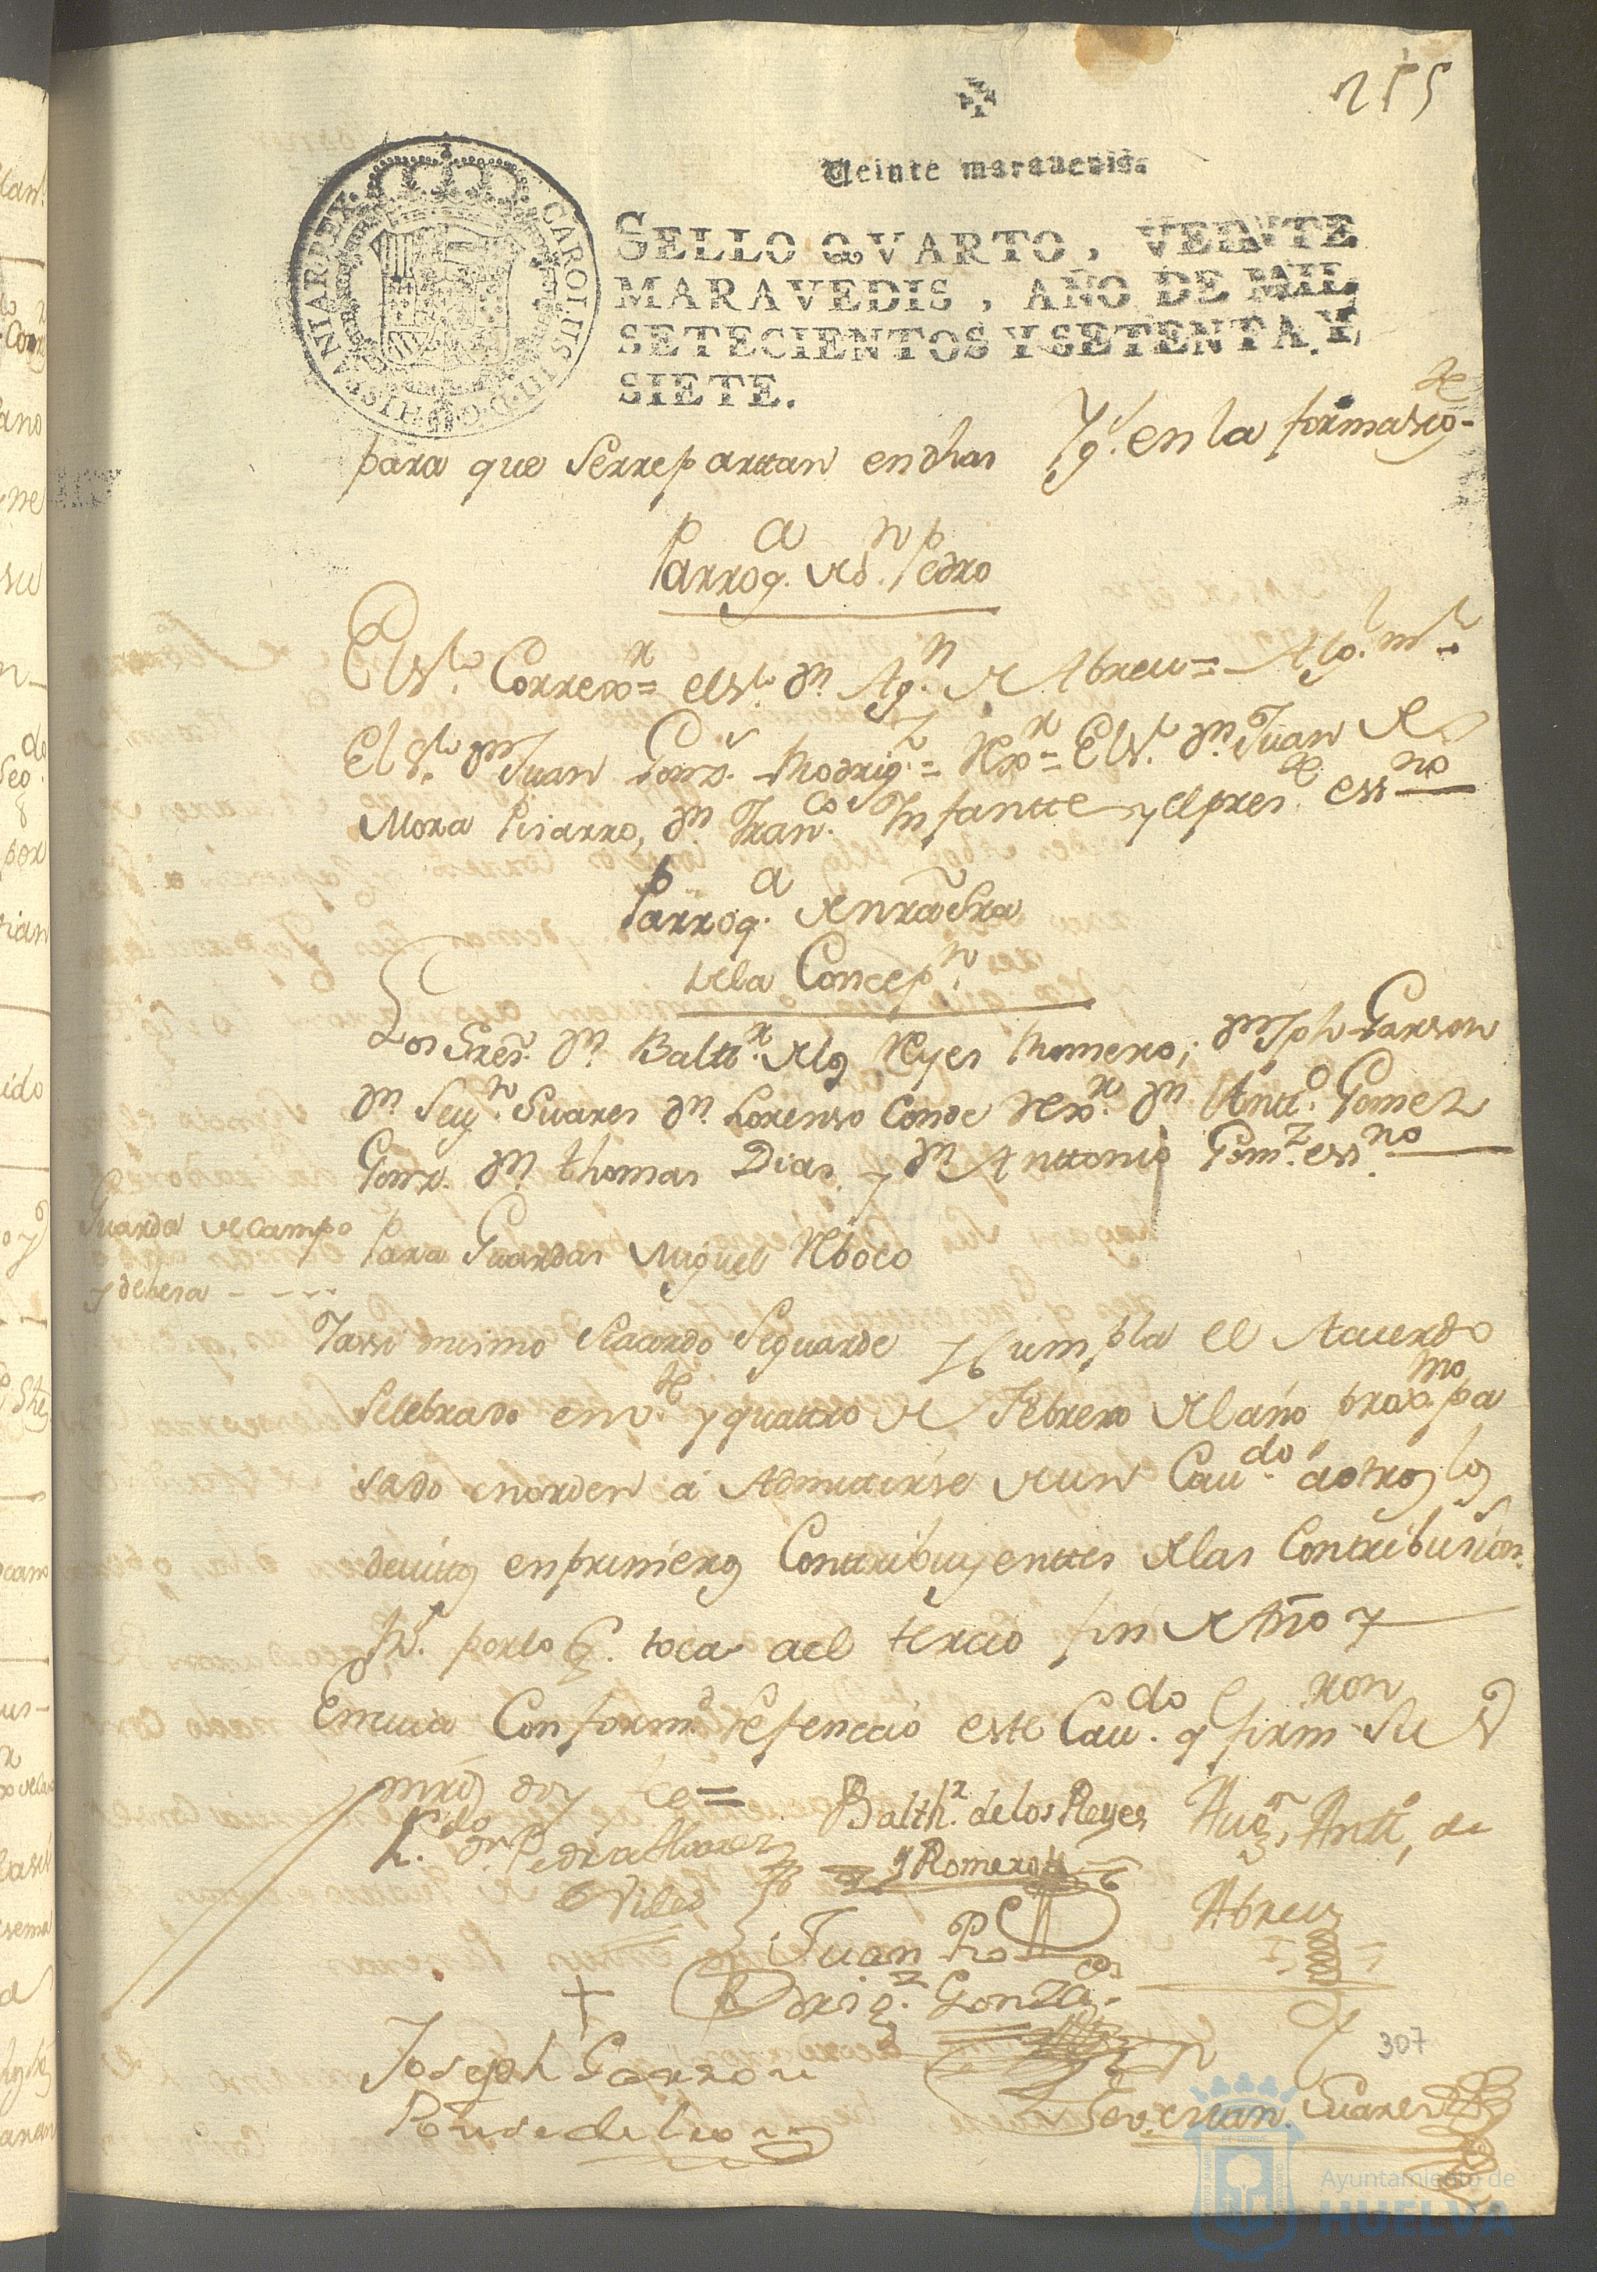 255
Veinte maravedis.
SELLO QVARTO, VEINTE
MARAVEDIS, AÑO DE MIL
SETECIENTOS Y SETENTA Y
SIETE.
CAROLUS III D. G. HISPANIAR REX
para que Serrepartan en dhas Yg.s en la forma sig.te
Parroq.a de S.n Pedro
El S.or Correx.or = el S.or Dn Ag.n de Abreu = Alg.l m.r
El S.or Dn Juan Gonz.s Rodrig.z = Rex.r = El S.r Dn Juan de
Mora Pisarro, Dn Fran.co Infantte y el pres.te ess.no
Parroq.a de nra Sra
de la Concep.n
Los Sres Dn Baltt.r de los Reyes Romero, Dn Jph Garson
Dn Seu.no Suares Dn Lorenso Conde Rex.r Dn Antt.o Gomez
Gonz. Dn thomas Dias y Dn Anttonio Gom.z ess.no
Guarda de campo
y dehesa
Para Guardas Miguel Reboco
Y assi mismo Seacordo Seguarde y Cumpla el Acuerdo
Selebrado en v.te y quattro de Febrero del año prox.mo pa
sado en orden a Admitirse de un Cau.do a otros los
devitos en primeros Conttribuyenttes de las Contribusion.s
R.s por lo q. toca a el tercio fin de Año y
En cuia Conform.d Sefenecio este Cau.do q firmaron Su
mrds doy fee =
L.do Dn Pedro Alvarez
Balth.r de los Reyes
y Romero
Aug.n Antt.o de
Abreu
Juan Ro
Drig.z Gonza.s
Joseph Garzon
Ponse de Leon
Severian. Suares
307
Ayuntamiento de
HUELVA